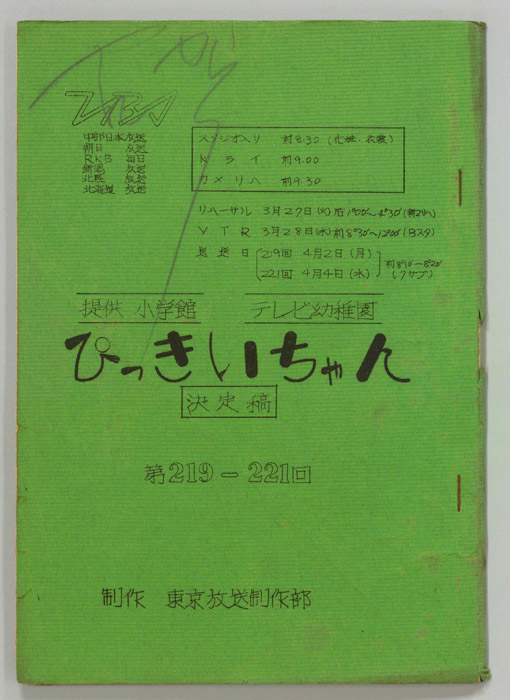 TBS
中部日本放送
朝日 放送
RKB 毎日
新潟 放送
北陸 放送
北海道 放送
スタジオ入リ 前8.30 (化粧・衣裳)
ドライ 前9.00
カメリハ 前9.30
リハーサル 3月27日(火)后1°00′~4°30′
VTR 3月28日(水)前8°30′~12°00′(Bスタ)
放送日 219回 4月2日(月)
221回 4月4日(水)
提供 小学館 テレビ幼稚園
ぴっきいちゃん
決定稿
第219-221回
制作 東京放送制作部